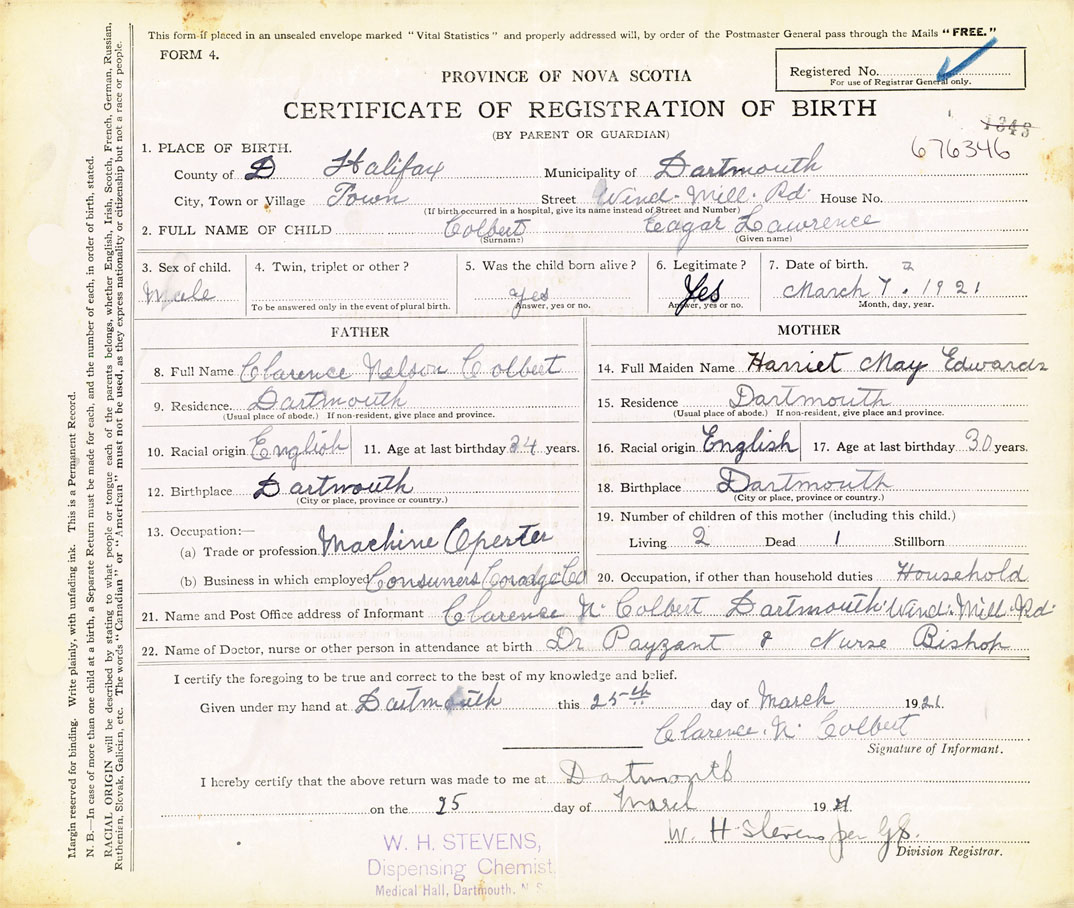 This form if placed in an unsealed envelope marked "Vital Statistics" and properly addressed will, by order of the Postmaster General pass through the Mails "FREE."
FORM 4.
PROVINCE OF NOVA SCOTIA
Registered No.
For use of Registrar General only.
CERTIFICATE OF REGISTRATION OF BIRTH
(BY PARENT OR GUARDIAN)
1343
676346
1. PLACE OF BIRTH.
County of D Halifax Municipality of Dartmouth
City, Town or Village Town Street Wind-Mill-Rd House No.
(If birth occurred in a hospital, give its name instead of Street and Number)
2. FULL NAME OF CHILD Colbert Eagar Lawrence
(Surname) (Given name)
3. Sex of child. 4. Twin, triplet or other? 5. Was the child born alive? 6. Legitimate? 7. Date of birth. 7
Male Yes Yes March 7. 1921
To be answered only in the event of plural birth. Answer, yes or no. Answer, yes or no. Month, day, year.
FATHER MOTHER
8. Full Name Clarence Nelson Colbert 14. Full Maiden Name Harriet May Edwards
9. Residence. Dartmouth 15. Residence Dartmouth
(Usual place of abode.) If non-resident, give place and province. (Usual place of abode.) If non-resident, give place and province.
10. Racial origin English 11. Age at last birthday 34 years. 16. Racial origin English 17. Age at last birthday 30 years.
12. Birthplace Dartmouth 18. Birthplace Dartmouth
(City or place, province or country.) (City or place, province or country.)
13. Occupation:— 19. Number of children of this mother (including this child.)
(a) Trade or profession Machine Operter Living 2 Dead 1 Stillborn
(b) Business in which employed Consumers Cordage Co 20. Occupation, if other than household duties Household
21. Name and Post Office address of Informant Clarence N. Colbert Dartmouth Wind-Mill-Rd
22. Name of Doctor, nurse or other person in attendance at birth Dr Payzant & Nurse Bishop
I certify the foregoing to be true and correct to the best of my knowledge and belief.
Given under my hand at Dartmouth this 25th day of March 1921.
Clarence. N. Colbert
Signature of Informant.
I hereby certify that the above return was made to me at Dartmouth
on the 25 day of March 1921
W. H Stevens per
Division Registrar.
W. H. STEVENS,
Dispensing Chemist.
Medical Hall, Dartmouth, N. S.
Margin reserved for binding. Write plainly, with unfading ink. This is a Permanent Record.
N. B.—In case of more than one child at a birth, a Separate Return must be made for each, and the number of each, in order of birth, stated.
RACIAL ORIGIN will be described by stating to what people or tongue each of the parents belongs, whether English, Irish, Scotch, French, German, Russian,
Ruthenian, Slovak, Galician, etc. The words "Canadian" or "American" must not be used, as they express nationality or citizenship but not a race or people.